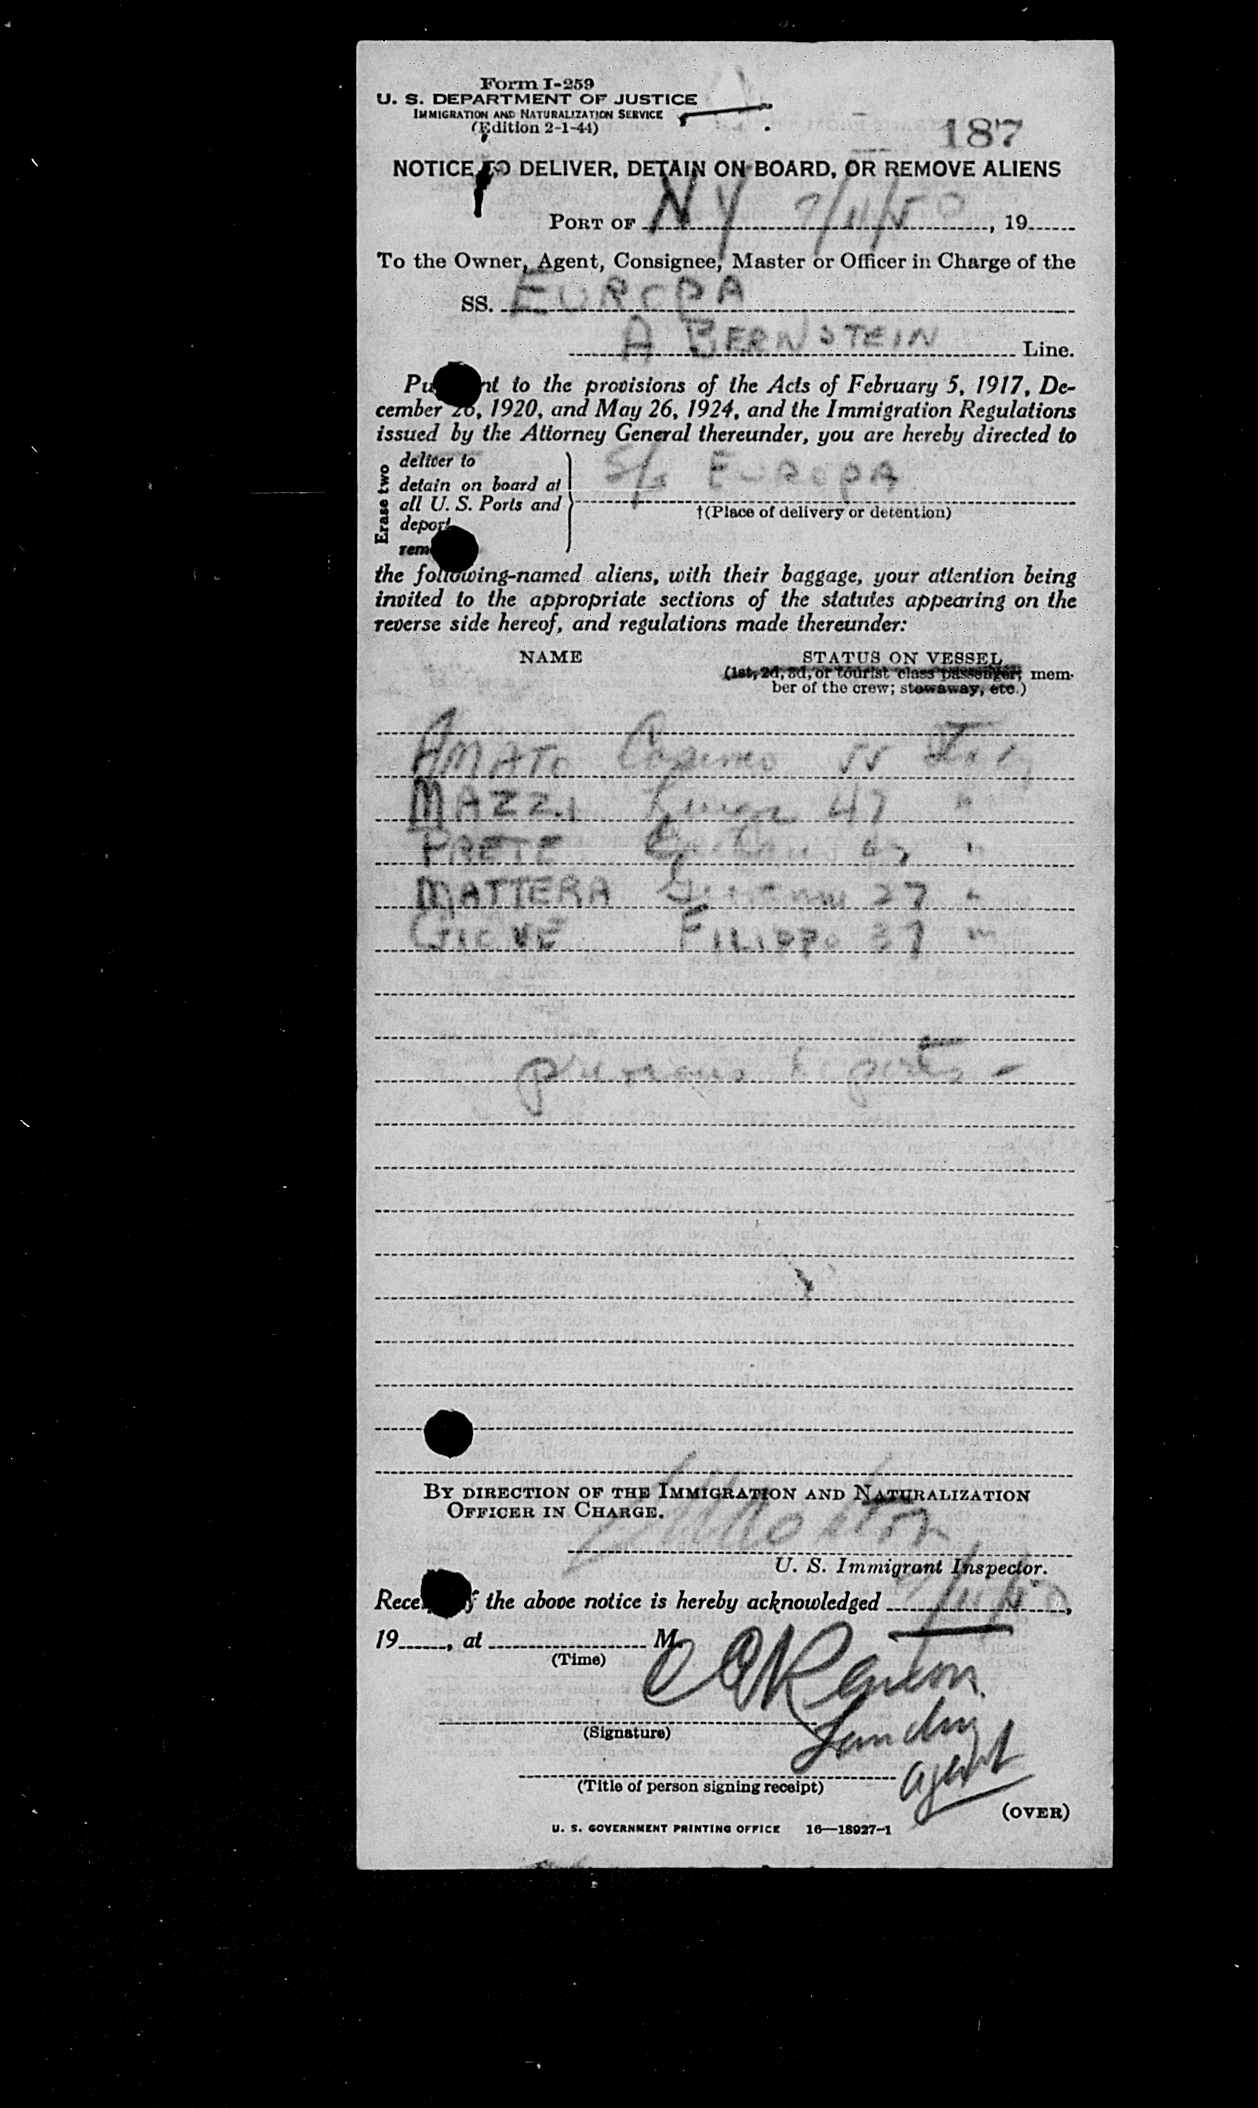 Form I-259
U. S. DEPARTMENT OF JUSTICE
IMMIGRATION AND NATURALIZATION SERVICE
(Edition 2-1-44)
187
NOTICE TO DELIVER, DETAIN ON BOARD, OR REMOVE ALIENS
PORT OF NY 9/11/50, 19
To the Owner, Agent, Consignee, Master or Officer in Charge of the
SS. EUROPA
A BERNSTEIN Line.
Pu nt to the provisions of the Acts of February 5, 1917, De-
cember 26, 1920, and May 26, 1924, and the Immigration Regulations
issued by the Attorney General thereunder, you are hereby directed to
Erase two
deliver to
detain on board at
all U. S. Ports and
deport
rem
S/s EUROPA
†(Place of delivery or detention)
the following-named aliens, with their baggage, your attention being
invited to the appropriate sections of the statutes appearing on the
reverse side hereof, and regulations made thereunder:
NAME STATUS ON VESSEL
(1st, 2d, 3d, or tourist class passenger; mem-
ber of the crew; stowaway, etc.)
AMATO Cosimo 55 Italy
MAZZI 47 "
PRETE "
MATTERA 27 "
GIOVE FILIPPO 37 "
previous reports -
BY DIRECTION OF THE IMMIGRATION AND NATURALIZATION
OFFICER IN CHARGE.
U. S. Immigrant Inspector.
Rece f the above notice is hereby acknowledged 9/11/50,
19, at M.
(Time)
(Signature)
Landing
agent
(Title of person signing receipt)
(OVER)
U. S. GOVERNMENT PRINTING OFFICE 16—18927-1